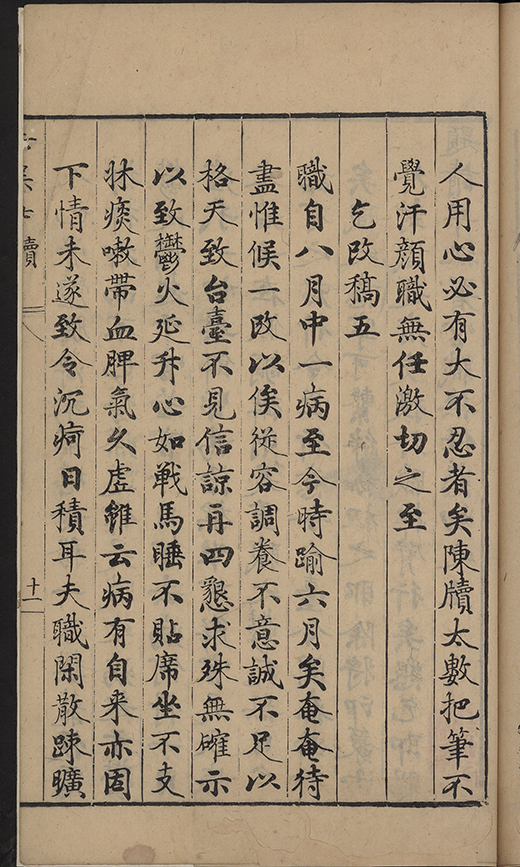 人用心必有大不忍者矣陳牘太數把筆不
覺汗顔職無任激切之至
乞改稿五
職自八月中一病至今時踰六月矣奄奄待
盡惟候一改以俟從容調養不意誠不足以
格天致台臺不見信諒再四懇求殊無確示
以致鬱火延升心如戰馬睡不貼席坐不支
牀痰嗽帶血脾氣久虛雖云病有自来亦固
下情未遂致令沉疴日積耳夫職閑散踈曠
去吳七牘
十一